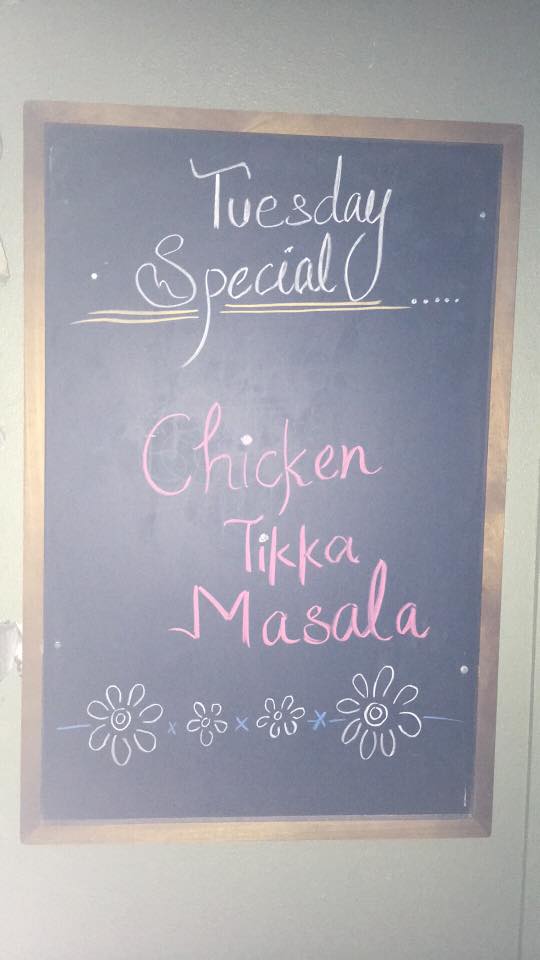 Tuesday
Special .....
Chicken
Tikka
Masala